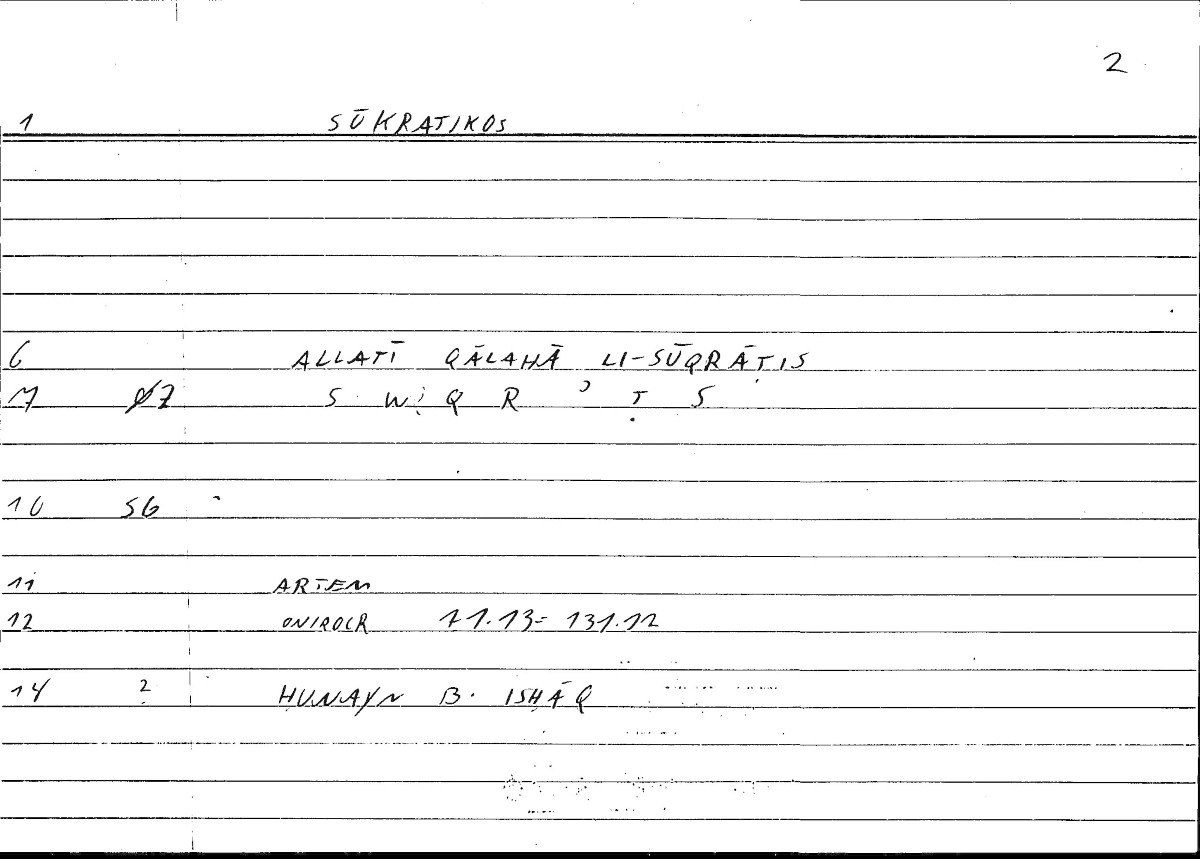 2
1 SŪKRATIKOS
6 ALLATĪ QĀLAHĀ LI-SŪQRĀṬIS
7 07 S W Q R ʾ Ṭ S
10 56
11 ARTEM
12 ONIROCR 71.13- 131.12
14 2 ḤUNAYN B. ISḤĀQ